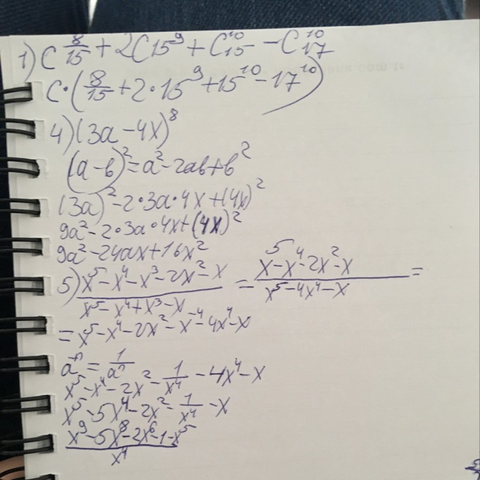 1) C 8/15 + 2C15⁹ + C¹⁰₁₅ - C¹⁰₁₇
C·(8/15 + 2·15⁹ + 15¹⁰ - 17¹⁰)
4) (3a - 4x)⁸
(a - b)² = a² - 2ab + b²
(3a)² - 2·3a·4x + (4x)²
9a² - 2·3a·4x + (4x)²
9a² - 24ax + 16x²
5) (x⁵ - x⁴ - x³ - 2x² - x)/(x⁵ - x⁴ + x³ - x) = (x⁵ - x⁴ - 2x² - x)/(x⁵ - 4x⁴ - x) =
= x⁵ - x⁴ - 2x² - x⁻⁴ - 4x⁴ - x
a⁻ⁿ = 1/aⁿ
x⁵ - x⁴ - 2x² - 1/x⁴ - 4x⁴ - x
x⁵ - 5x⁴ - 2x² - 1/x⁴ - x
(x⁹ - 5x⁸ - 2x⁶ - 1 - x⁵)/x⁴